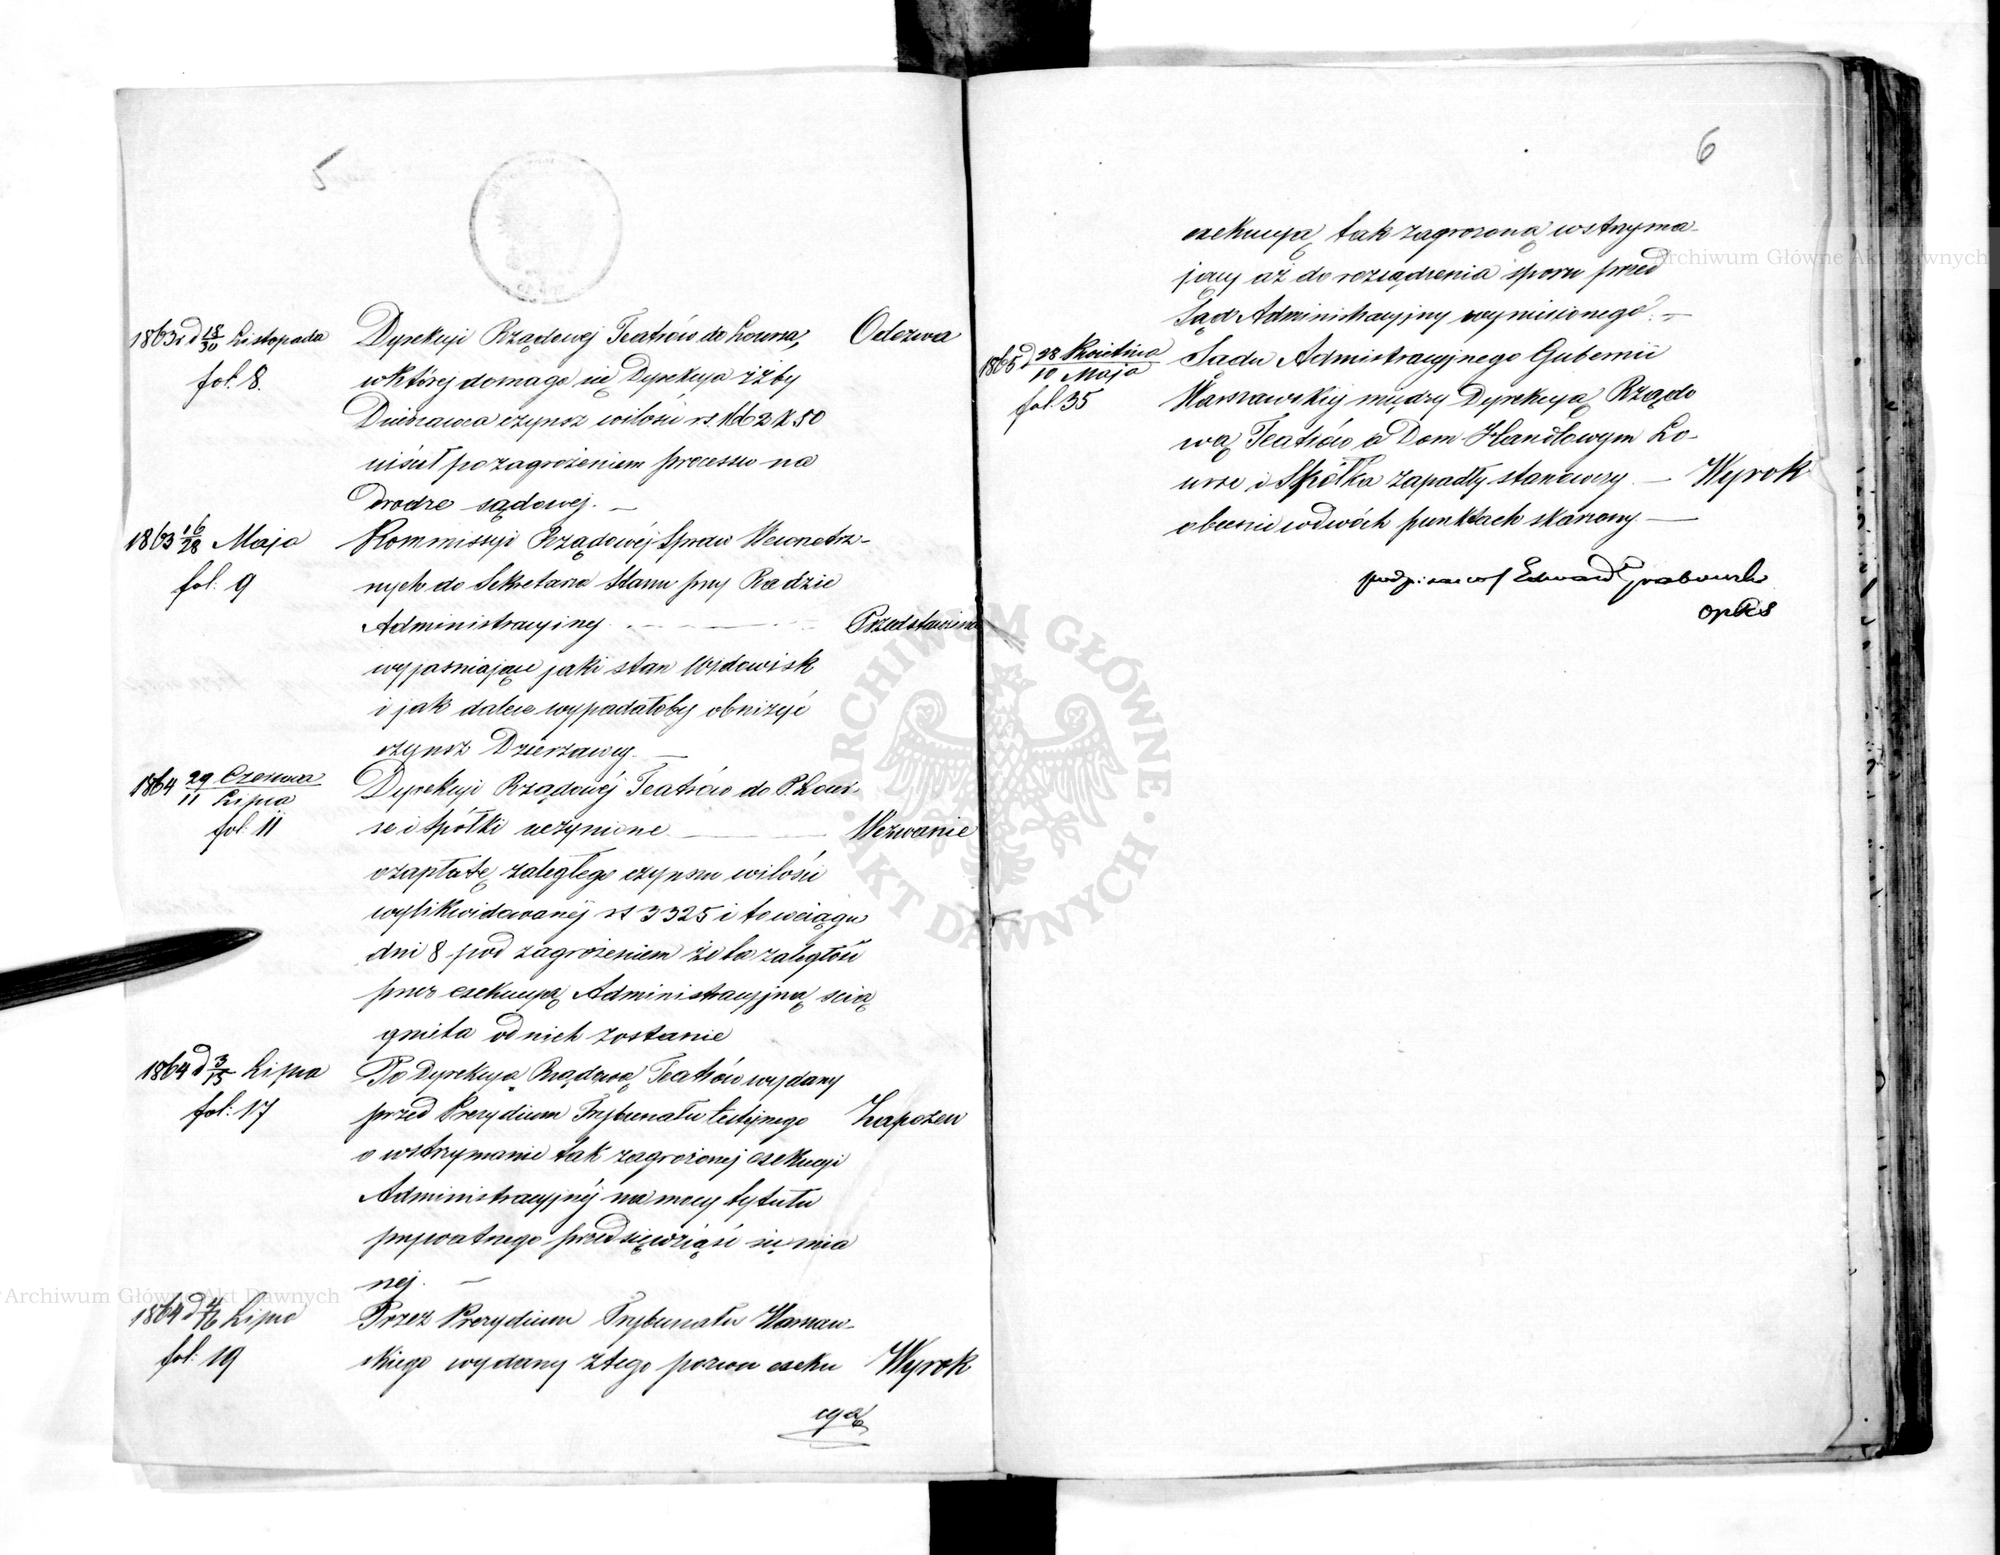 5
1863 r d 18/30 Listopada Dyrekcji Rządowej Teatrów do Lourse, Odezwa
fol. 8. w której domaga się Dyrekcja iżby
Dzierżawca czynsz w ilości rs. 1662 k 50
uiścił pod zagrożeniem processu na
drodze sądowej. —
1863 16/28 Maja Kommissyi Rządowej Spraw Wewnętrz-
fol: 9 nych do Sekretarza Stanu przy Radzie
Administracyjnej Przedstawienie
wyjaśniające jaki stan Widowisk
i jak dalece wypadałoby obniżyć
czynsz Dzierżawcy. —
1864 29 Czerwca/11 Lipca Dyrekcji Rządowej Teatrów do P. Lour-
fol: 11 se i Spółki uczynione — Wezwanie
o zapłatę zaległego czynszu w ilości
wylikwidowanej rs 3325 i to w ciągu
dni 8 pod zagrożeniem że ta zaległość
przez exekucyą Administracyjną ścią
gnięta od nich zostanie
1864 d 3/15 Lipca Po Dyrekcją Rządową Teatrów wydany
fol: 17 przed Prezydium Trybunału tutejszego Zapozew
o wstrzymanie tak zagrożonej exekucyi
Administracyjnej na mocy tytułu
prywatnego przedsięwziąść się mia
nej. —
1864 d 4/16 Lipca Przez Prezydium Trybunału Warszaw-
fol: 19 skiego wydany z tego pozwu exeku Wyrok
cyą
6
exekucyą tak zagrożoną wstrzyma-
jący aż do rozsądzenia sporu przed
Sąd Administracyjny wyniesionego. —
1865 d 28 Kwietnia/10 Maja Sądu Admistracyjnego Gubernii
fol. 35 Warszawskiej między Dyrekcyą Rządo
wą Teatrów a Dom Handlowym Lo-
urse i Spółka zapadły stanowczy — Wyrok
obecnie w dwóch punktach skarżony —
podpisano Edward Grabowski
OpRS
Archiwum Główne Akt Dawnych
Archiwum Główne Akt Dawnych
ARCHIWUM GŁÓWNE · AKT DAWNYCH ·